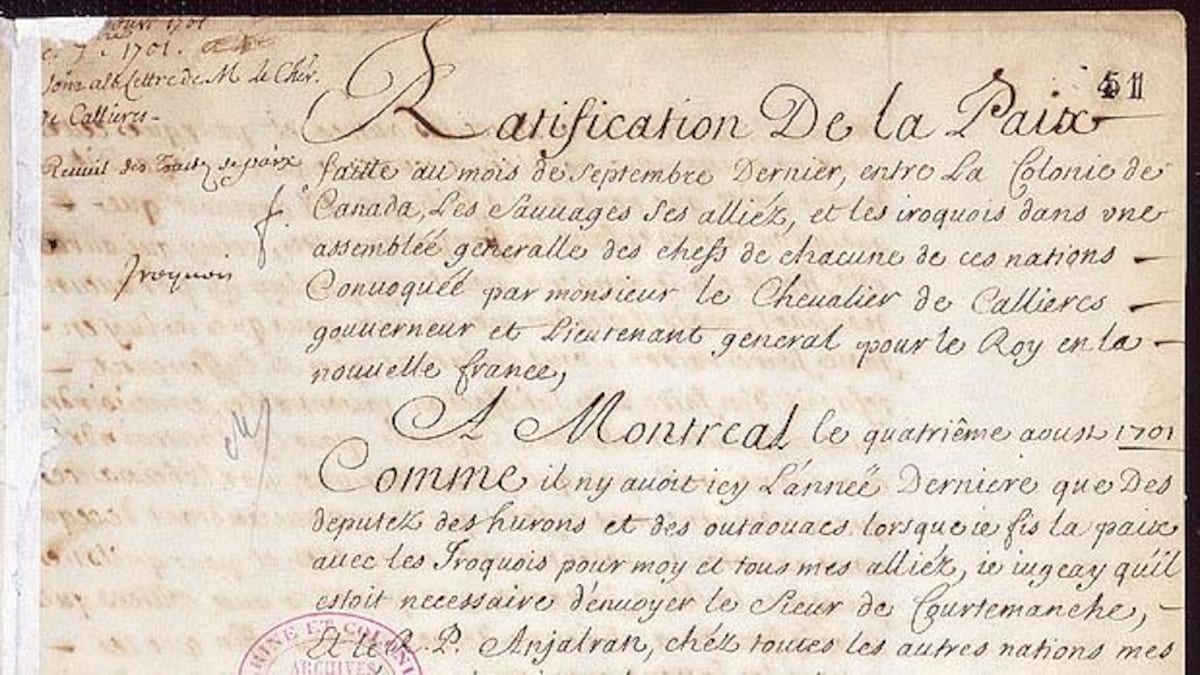 aoust 1701
1701.
Joint a la Lettre de M. le Cher.
de Callieres-
Recueil des Traitez de paix
Iroquois
51
Ratification De la Paix
faitte au mois de septembre Dernier, entre La Colonie de
Canada, Les Sauvages Ses alliéz, et les iroquois dans vne
assemblée generalle des chefs de chacune de ces nations
Conuoquéé par monsieur le Chevalier de Callieres
gouuerneur et Lieutenant general pour le Roy en la
nouuelle france,
A Montreal le quatriême aoust 1701
Comme il ny auoit icy L'année Derniere que Des
deputez des hurons et des outaouacs lorsque ie fis la paix
auec les Iroquois pour moy et tous mes alliéz, ie iugeay qu'il
estoit necessaire d'enuoyer le Sieur de Courtemanche,
Et le R. P. Anjalran, chéz toutes les autres nations mes
MARINE ET COLONIES
ARCHIVES